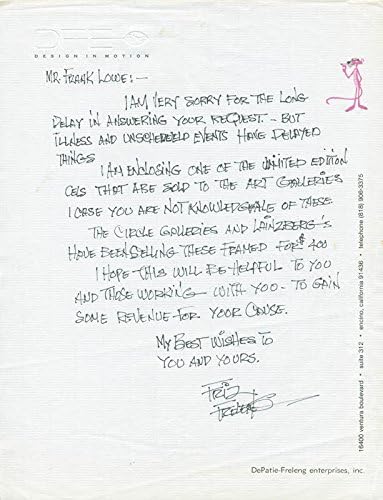 DFE
DESIGN IN MOTION
MR. FRANK LOWE:—
I AM VERY SORRY FOR THE LONG
DELAY IN ANSWERING YOUR REQUEST. — BUT
ILLNESS AND UNSCHEDELD EVENTS HAVE DELAYED
THINGS
I AM ENCLOSING ONE OF THE LIMITED EDITION
CELS THAT ARE SOLD TO THE ART GALLERIES
I CASE YOU ARE NOT KNOWLEDGEALE OF THESE
THE CIRCLE GALLERIES AND LAINZBERG'S
HAVE BEEN SELLING THESE FRAMED FOR $400
I HOPE THIS WILL BE HELPFUL TO YOU
AND THOSE WORKING WITH YOU - TO GAIN
SOME REVENUE FOR YOUR CAUSE.
MY BEST WISHES TO
YOU AND YOURS.
FRIZ
FRELENG
16400 ventura boulevard • suite 312 • encino, california 91436 • telephone (818) 906-3375
DePatie-Freleng enterprises, inc.